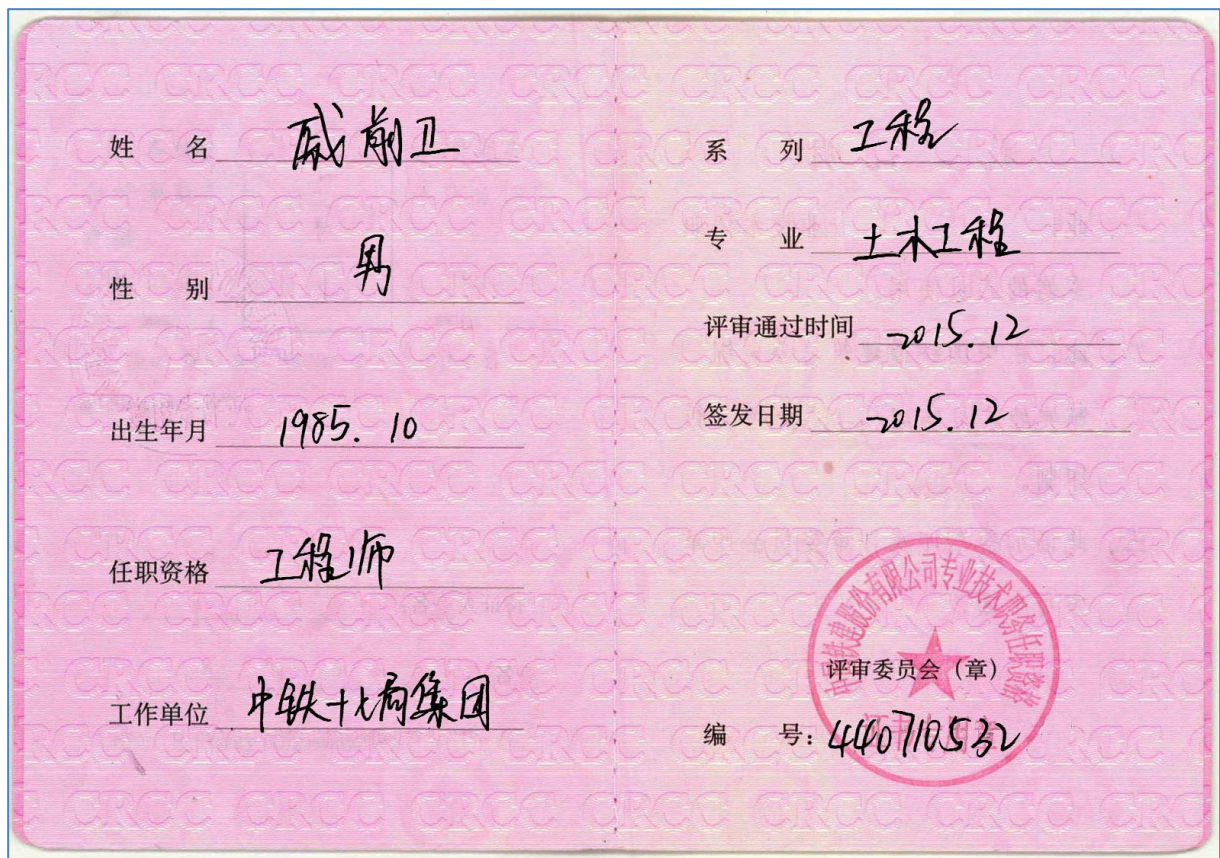 姓 名 戚前卫
性 别 男
出生年月 1985.10
任职资格 工程师
工作单位 中铁十七局集团
系 列 工程
专 业 土木工程
评审通过时间 2015.12
签发日期 2015.12
中国铁建股份有限公司专业技术职务任职资格
评审委员会（章）
编 号：440710532
CRCC